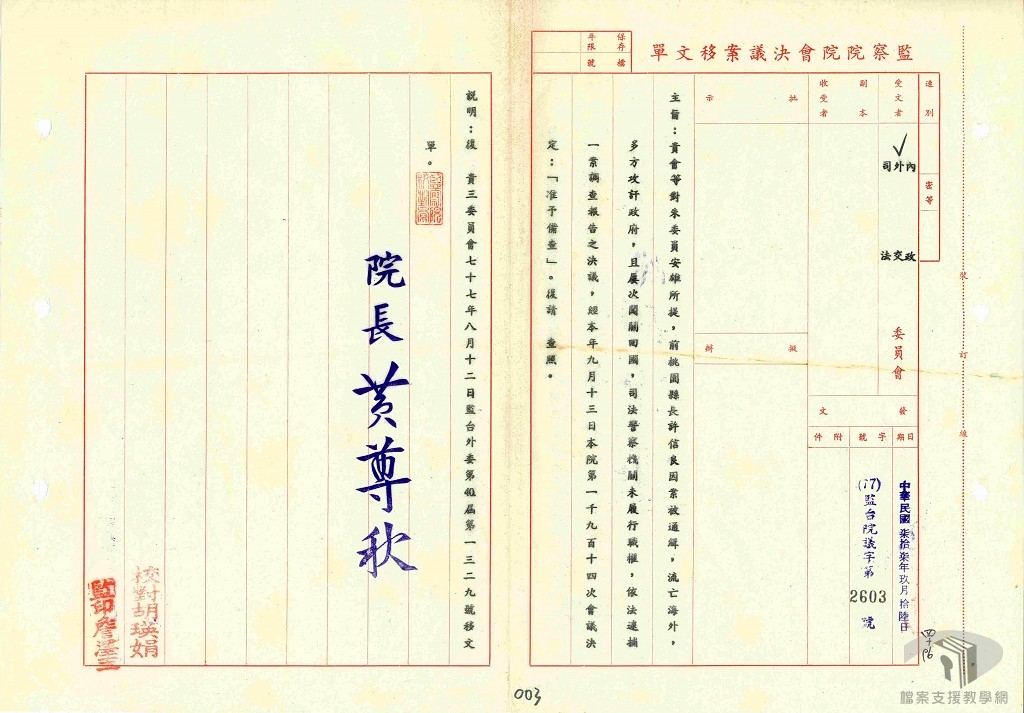 監察院院會決議案移文單
保存年限
檔號
速別
密等
受文者
內外司
政交法
委員會
副本收受者
批示
擬辦
發文
日期
中華民國柒拾柒年玖月拾陸日
字號
(17)監台院議字第2603號
附件
主旨：貴會等對朱委員安雄所提，前桃園縣長許信良因案被通緝，流亡海外，
多方攻訐政府，且屢次闖關回國，司法警察機關未履行職權，依法逮捕
一案調查報告之決議，經本年九月十三日本院第一千九百十四次會議決
定：「准予備查」。復請　查照。
說明：復　貴三委員會七十七年八月十二日監台外委第40屆第一三二九號移文
單。
院長黃尊秋
校對胡瑛娟
裝
訂
線
003
檔案支援教學網